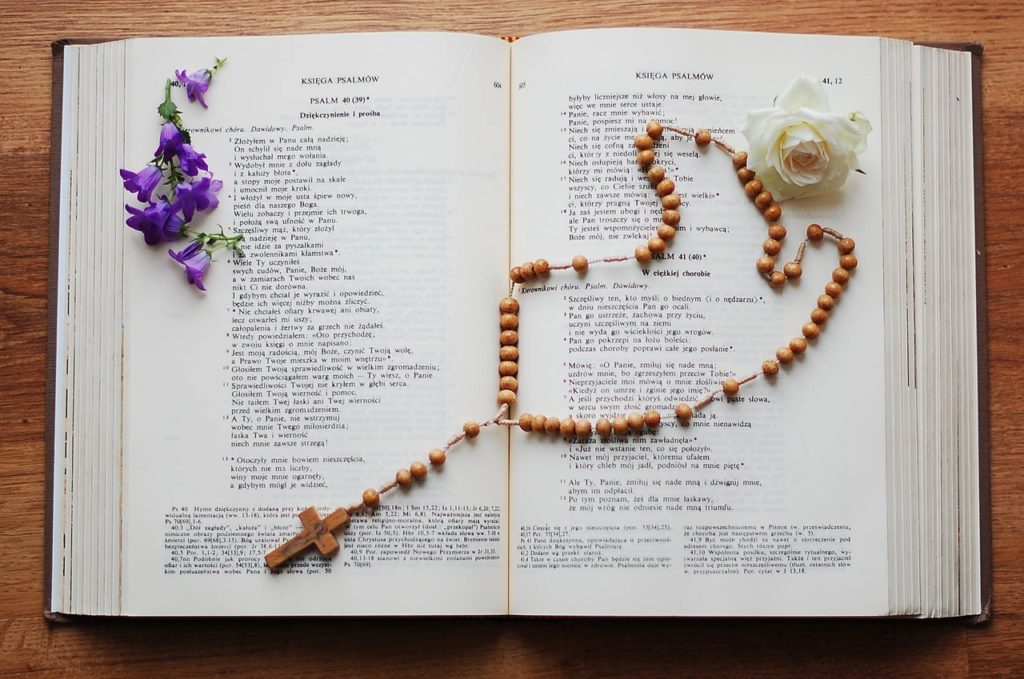 40,
KSIĘGA PSALMÓW
604
PSALM 40 (39)*
Dziękczynienie i prośba
Kierownikowi chóru. Dawidowy. Psalm.
2 Złożyłem w Panu całą nadzieję;
On schylił się nade mną
i wysłuchał mego wołania.
3 Wydobył mnie z dołu zagłady
i z kałuży błota*,
a stopy moje postawił na skale
i umocnił moje kroki.
4 I włożył w moje usta śpiew nowy,
pieśń dla naszego Boga.
Wielu zobaczy i przejmie ich trwoga,
i położą swą ufność w Panu.
5 Szczęśliwy mąż, który złożył
nadzieję w Panu,
nie idzie za pyszałkami
i za zwolennikami kłamstwa*.
6 Wiele Ty uczyniłeś
swych cudów, Panie, Boże mój,
a w zamiarach Twoich wobec nas
nikt Ci nie dorówna.
I gdybym chciał je wyrazić i opowiedzieć,
będzie ich więcej niżby można zliczyć.
7 * Nie chciałeś ofiary krwawej ani obiaty,
lecz otwarłeś mi uszy;
całopalenia i żertwy za grzech nie żądałeś.
8 Wtedy powiedziałem: «Oto przychodzę;
w zwoju księgi o mnie napisano:
9 Jest moją radością, mój Boże, czynić Twoją wolę,
a Prawo Twoje mieszka w moim wnętrzu»*.
10 Głosiłem Twoją sprawiedliwość w wielkim zgromadzeniu;
oto nie powściągałem warg moich — Ty wiesz, o Panie.
11 Sprawiedliwości Twojej nie kryłem w głębi serca.
Głosiłem Twoją wierność i pomoc.
Nie taiłem Twej łaski ani Twej wierności
przed wielkim zgromadzeniem.
12 A Ty, o Panie, nie wstrzymuj
wobec mnie Twego miłosierdzia;
łaska Twa i wierność
niech mnie zawsze strzegą!
13 * Otoczyły mnie bowiem nieszczęścia,
których nie ma liczby,
winy moje mnie ogarnęły,
a gdybym mógł je widzieć,
Ps 40. Hymn dziękczynny z dodaną przy
40,3 „Dół zagłady", „kałuża" i „błoto"
605
KSIĘGA PSALMÓW
41, 12
byłyby liczniejsze niż włosy na mej głowie,
więc we mnie serce ustaje.
14 Panie, racz mnie wybawić;
Panie, pospiesz mi na pomoc!
15 Niech się zmieszają i
co na me życie czyhają, aby je
Niech się cofną
ci, którzy z niedoli mej się weselą.
16 Niech osłupieją hańbą okryci,
którzy mi mówią:
17 Niech się radują i weselą w Tobie
wszyscy, co Ciebie szukają
i niech zawsze mówią: «Pan jest wielki»*
ci, którzy pragną Twojej
18 Ja zaś jestem ubogi i nędzny,
ale Pan troszczy się o mnie.
Ty jesteś wspomożycielem moim i wybawcą;
Boże mój, nie zwlekaj!
PSALM 41 (40)*
W ciężkiej chorobie
1 Kierownikowi chóru. Psalm. Dawidowy.
2 Szczęśliwy ten, kto myśli o biednym (i o nędzarzu)*,
w dniu nieszczęścia Pan go ocali.
3 Pan go ustrzeże, zachowa przy życiu,
uczyni szczęśliwym na ziemi
i nie wyda go wściekłości jego wrogów.
4 Pan go pokrzepi na łożu boleści:
podczas choroby poprawi całe jego posłanie*.
5 Mówię: «O Panie, zmiłuj się nade mną;
uzdrów mnie, bo zgrzeszyłem przeciw Tobie!»
6 Nieprzyjaciele moi mówią o mnie złośliwie:
«Kiedyż on umrze i zginie jego imię?»
7 A jeśli przychodzi któryś odwiedzić, mówi puste słowa,
w sercu swym złość gromadzi,
skoro wyjdzie
mnie nienawidzą
9 «Zaraza złośliwa nim zawładnęła»*
i «Już nie wstanie ten, co się położył».
10 Nawet mój przyjaciel, któremu ufałem
i który chleb mój jadł, podniósł na mnie piętę*.
11 Ale Ty, Panie, zmiłuj się nade mną i dźwignij mnie,
abym im odpłacił.
12 Po tym poznam, żeś dla mnie łaskawy,
że mój wróg nie odniesie nade mną triumfu.